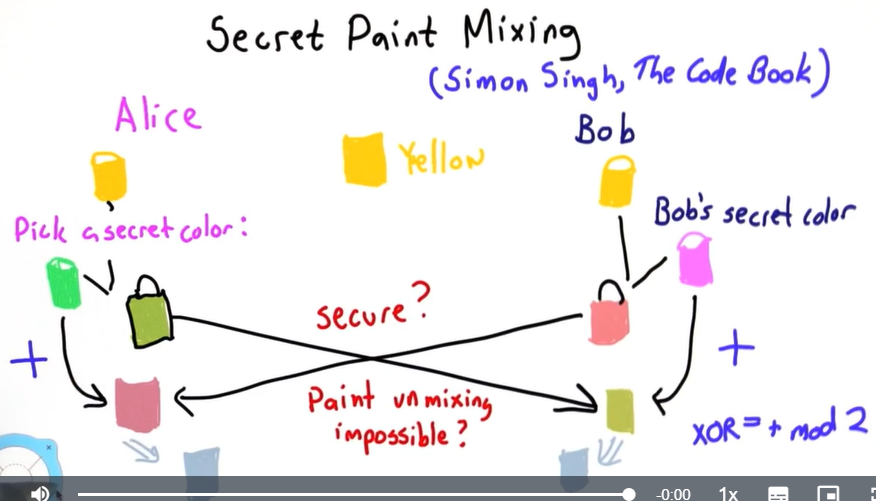 Secret Paint Mixing
(Simon Singh, The Code Book)
Alice
Bob
Yellow
Pick a secret color:
Bob's secret color
secure?
+
+
Paint unmixing
impossible?
XOR = + mod 2
-0:00 1x